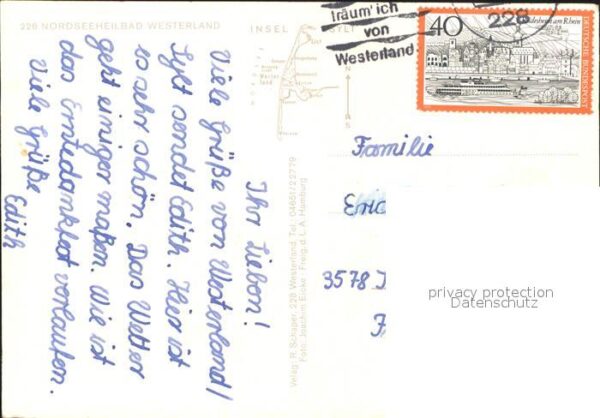 228 NORDSEEHEILBAD WESTERLAND
INSEL SYLT
List
Wester
land
N
S
Träum' ich
von
Westerland
228
40
Rüdesheim am Rhein
DEUTSCHE BUNDESPOST
Ihr Lieben!
Viele Grüße von Westerland/
Sylt sendet Edith. Hier ist
es sehr schön. Das Wetter
geht einiger maßen. Wie ist
das Erntedankfest verlaufen.
Viele Grüße
Edith
Verlag: R. Schaper, 228 Westerland, Tel. 04651/22779
Foto: Joachim Eicke · Freig. d. L. A. Hamburg
Familie
3578
privacy protection
www.oldthing.com